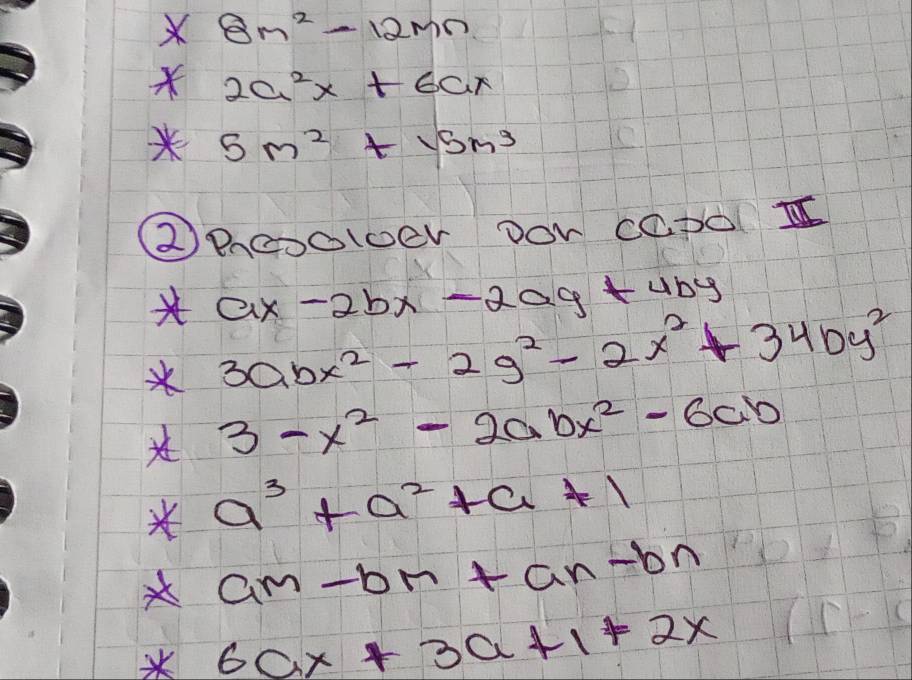 * 8m² - 12mn
* 2a²x + 6ax
* 5m² + 15m³
② Resolver por caso III
* ax - 2bx - 2ay + 4by
* 3abx² - 2y² - 2x² + 34by²
* 3 - x² - 2abx² - 6ab
* a³ + a² + a + 1
* am - bm + an - bn
* 6ax + 3a + 1 + 2x